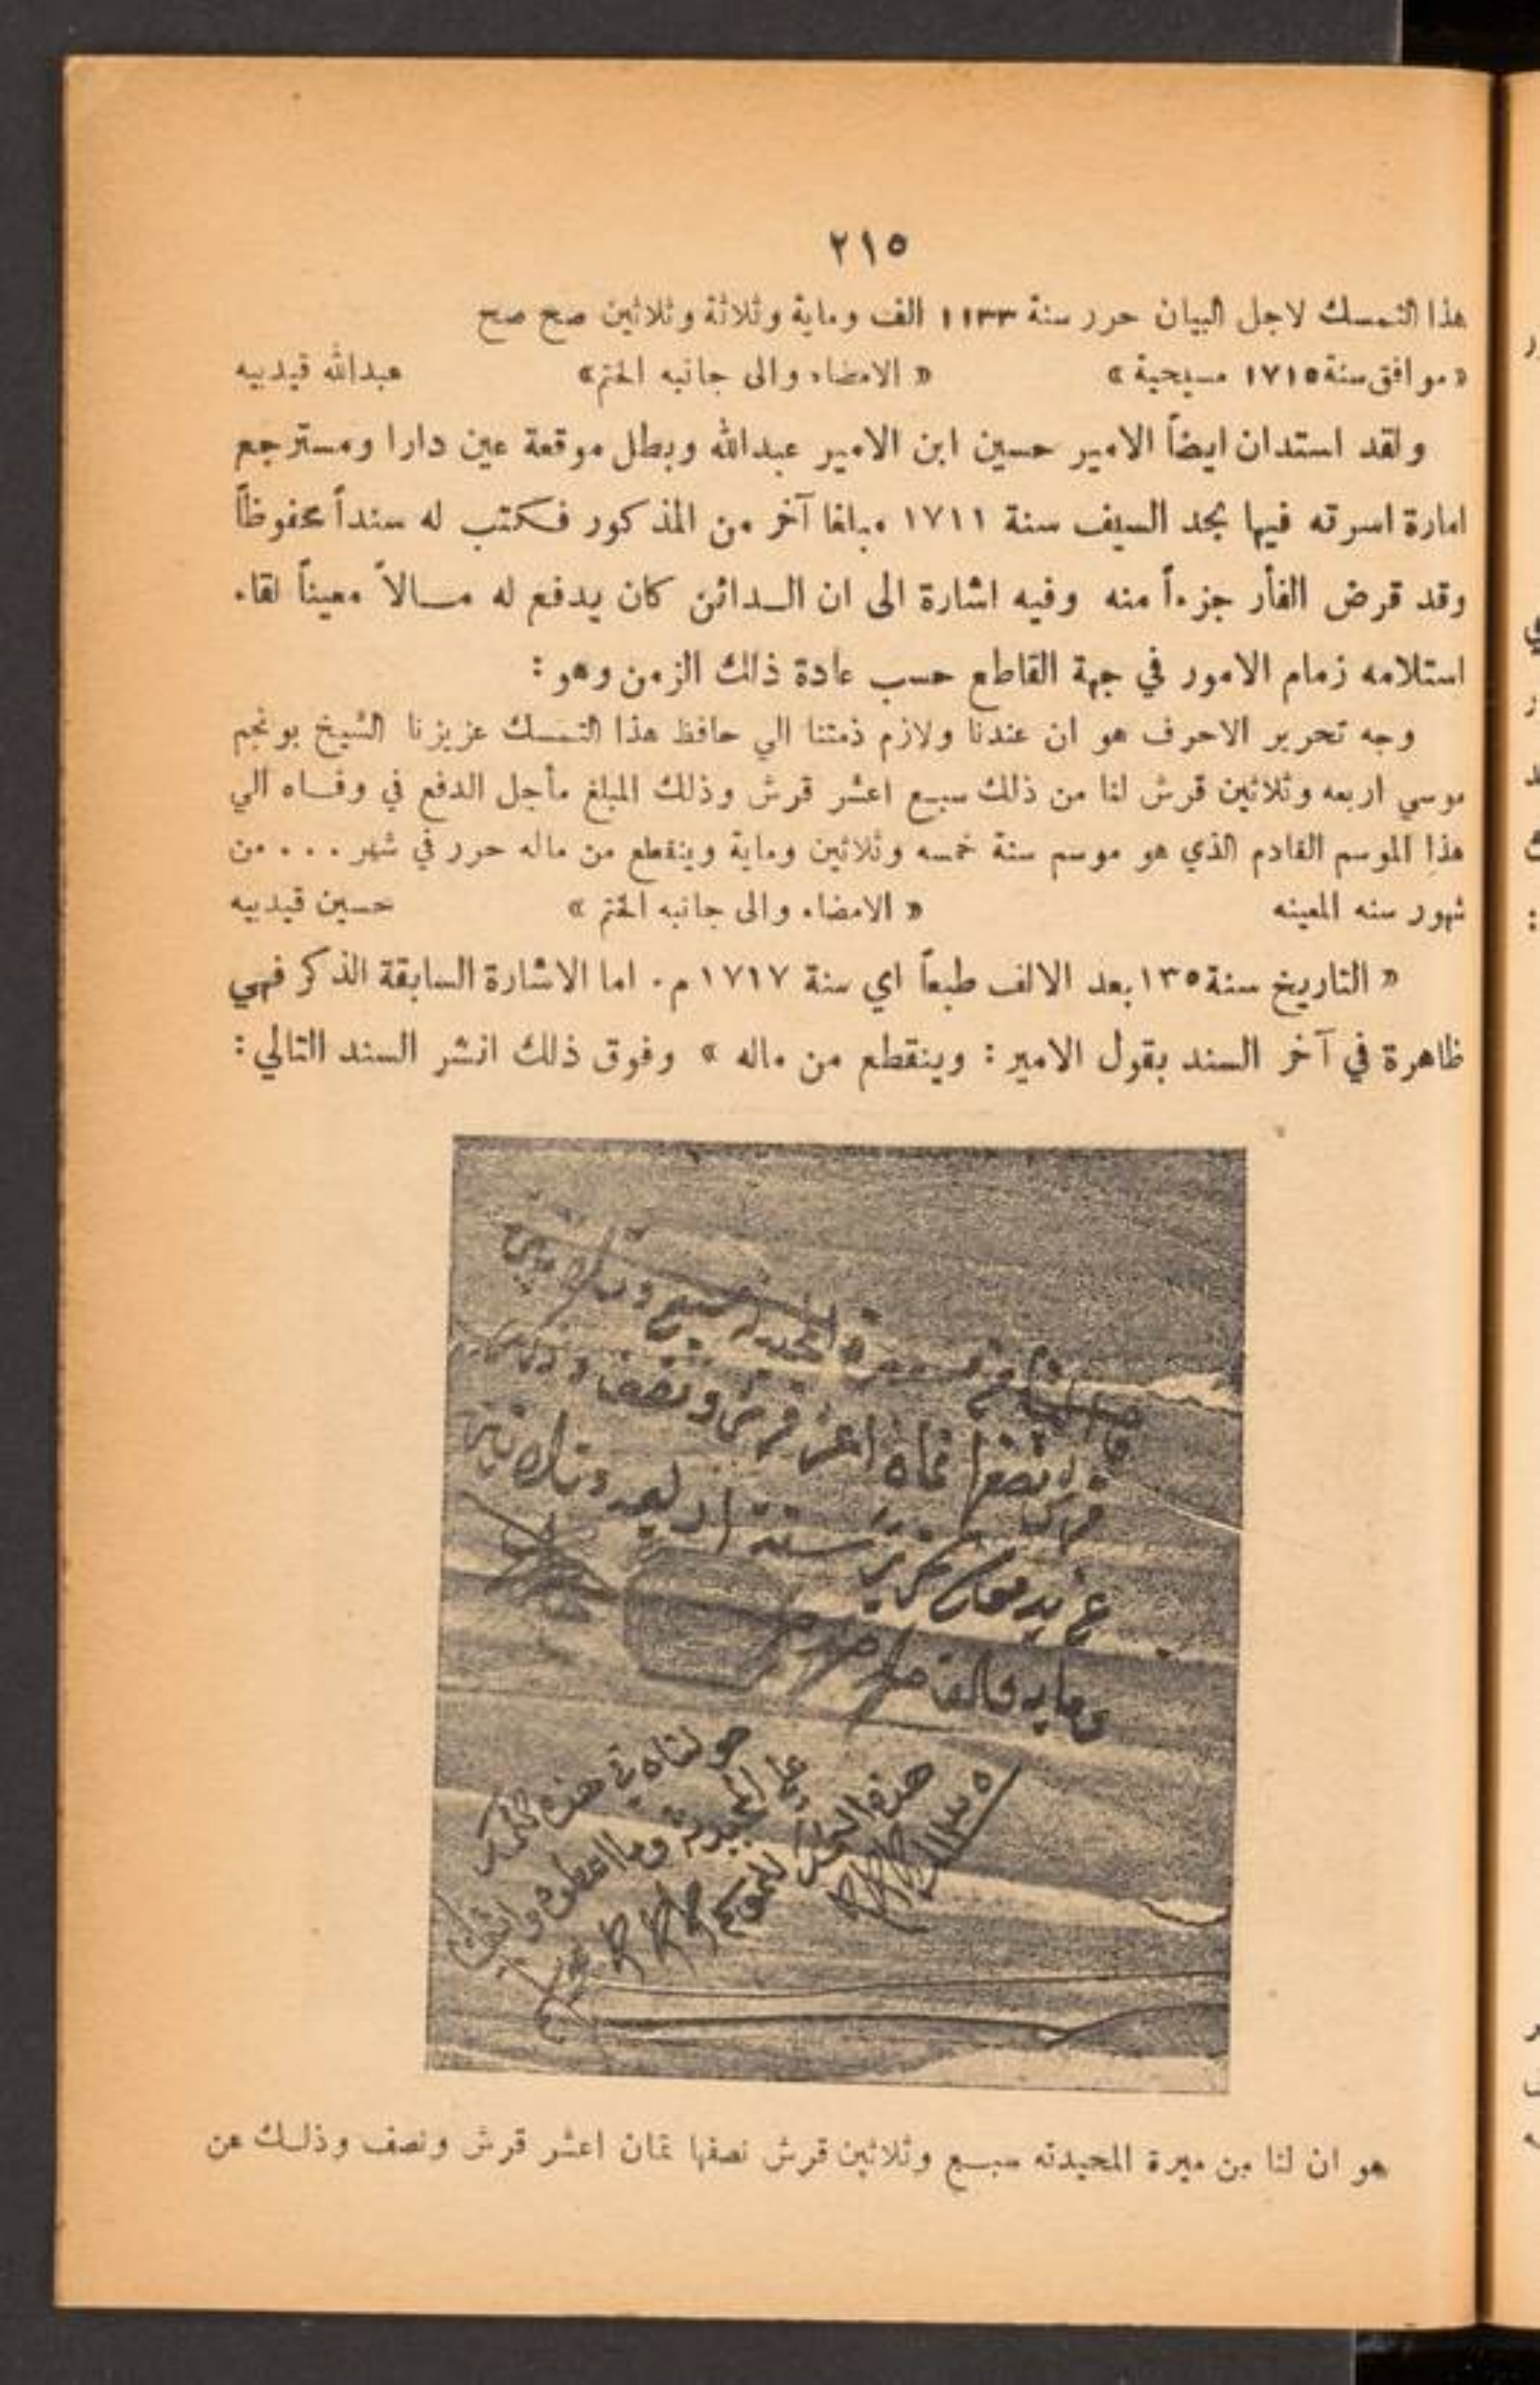 ٢١٥
هذا التمسك لاجل البيان حرر سنة ١١٣٣ الف وماية وثلاثة وثلاثين صح صح
« موافق سنة ١٧١٥ مسيحية » « الامضاء والى جانبه الختم » عبدالله قيدبيه
ولقد استدان ايضاً الامير حسين ابن الامير عبدالله وبطل موقعة عين دارا ومسترجع
امارة اسرته فيها بحد السيف سنة ١٧١١ مبلغا آخر من المذكور فكتب له سنداً محفوظاً
وقد قرض الفأر جزءاً منه وفيه اشارة الى ان الدائن كان يدفع له مالاً معيناً لقاء
استلامه زمام الامور في جهة القاطع حسب عادة ذلك الزمن وهو :
وجه تحرير الاحرف هو ان عندنا ولازم ذمتنا الي حافظ هذا التمسك عزيزنا الشيخ بونجم
موسي اربعه وثلاثين قرش لنا من ذلك سبع اعشر قرش وذلك المبلغ مأجل الدفع في وفاه الي
هذا الموسم القادم الذي هو موسم سنة خمسه وثلاثين وماية وينقطع من ماله حرر في شهر ... من
شهور سنه المعينه « الامضاء والى جانبه الختم » حسين قيدبيه
« التاريخ سنة ١٣٥ بعد الالف طبعاً اي سنة ١٧١٧ م. اما الاشارة السابقة الذكر فهي
ظاهرة في آخر السند بقول الامير : وينقطع من ماله » وفوق ذلك انشر السند التالي :
قرش نصفها ثمان اعشر قرش ونصف وذلك
عن يد تحرير سنة اربعه وثلاثين
ومايه والف صح صح صح
١١٣٥
هو ان لنا من ميرة المحيدثه سبع وثلاثين قرش نصفها ثمان اعشر قرش ونصف وذلك عن